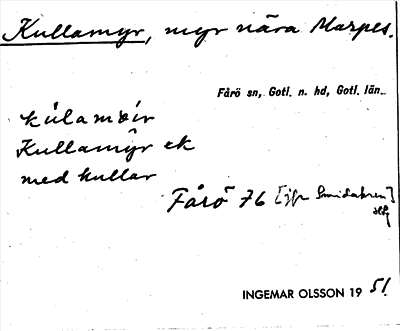 Kullamyr, myr nära Marpes.
Fårö sn, Gotl. n. hd, Gotl. län.
kúlamɒír
Kullamyr ek
med kullar
Fårö 76 [jfr Smidakren]
INGEMAR OLSSON 19 51.